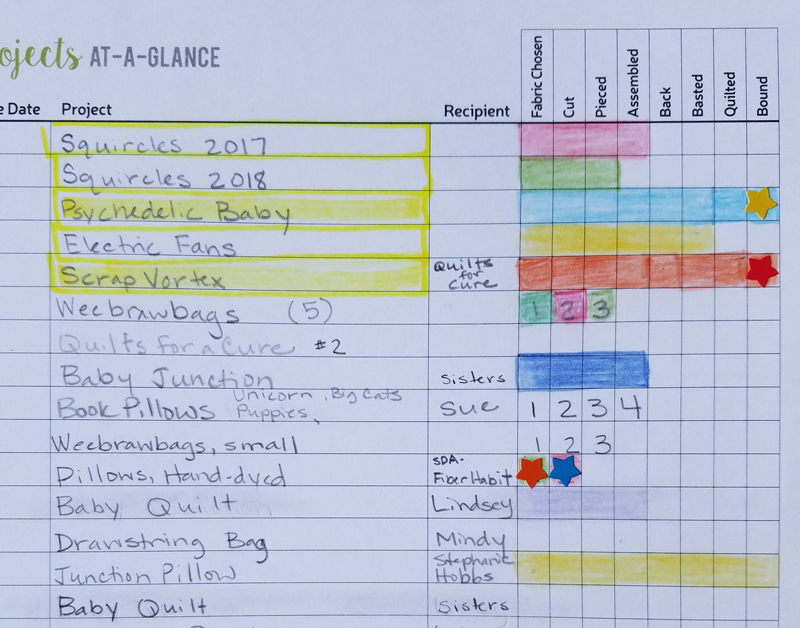 ojects AT-A-GLANCE
e Date Project Recipient Fabric Chosen Cut Pieced Assembled Back Basted Quilted Bound
Squircles 2017
Squircles 2018
Psychedelic Baby
Electric Fans
Scrap Vortex Quilts for Cure
Weebrawbags (5) 1 2 3
Quilts for a Cure #2
Baby Junction Sisters
Book Pillows Unicorn, Big Cats Puppies, Sue 1 2 3 4
Weebrawbags, small 1 2 3
Pillows, Hand-dyed SDA- Fiber Habit
Baby Quilt Lindsey
Drawstring Bag Mindy
Junction Pillow Stephanie Hobbs
Baby Quilt Sisters